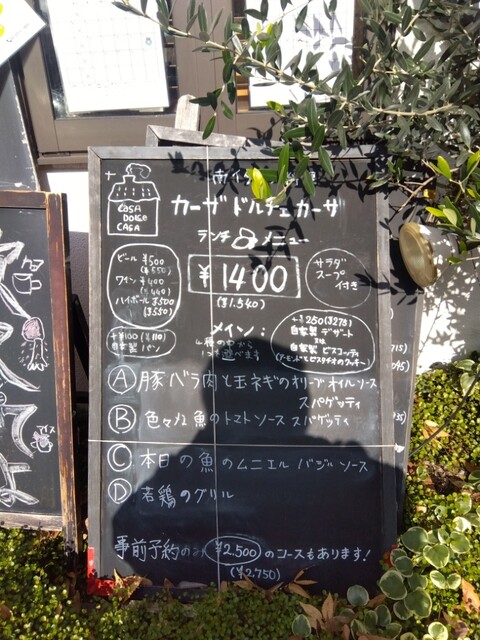 CASA
DOLCE
CASA
南イタ
カーザ ドルチェ カーザ
ランチ メニュー
ビール ¥500
(¥550)
ワイン ¥400
(¥440)
ハイボール ¥500
(¥550)
¥1400
(¥1.540)
サラダ
スープ
付き
+¥100(¥110)
自家製 パン
メイン:
4種の中から
1つを選べます
+¥250(¥275)
自家製 デザート
又は
自家製 ビスコッティ
(アーモンドとピスタチオのクッキー)
Ⓐ 豚バラ肉と玉ネギのオリーブオイルソース
スパゲッティ
Ⓑ 色々な魚のトマトソース スパゲッティ
Ⓒ 本日の魚のムニエル バジルソース
Ⓓ 若鶏のグリル
事前予約のみ ¥2.500 のコースもあります!
(¥2.750)
アイス